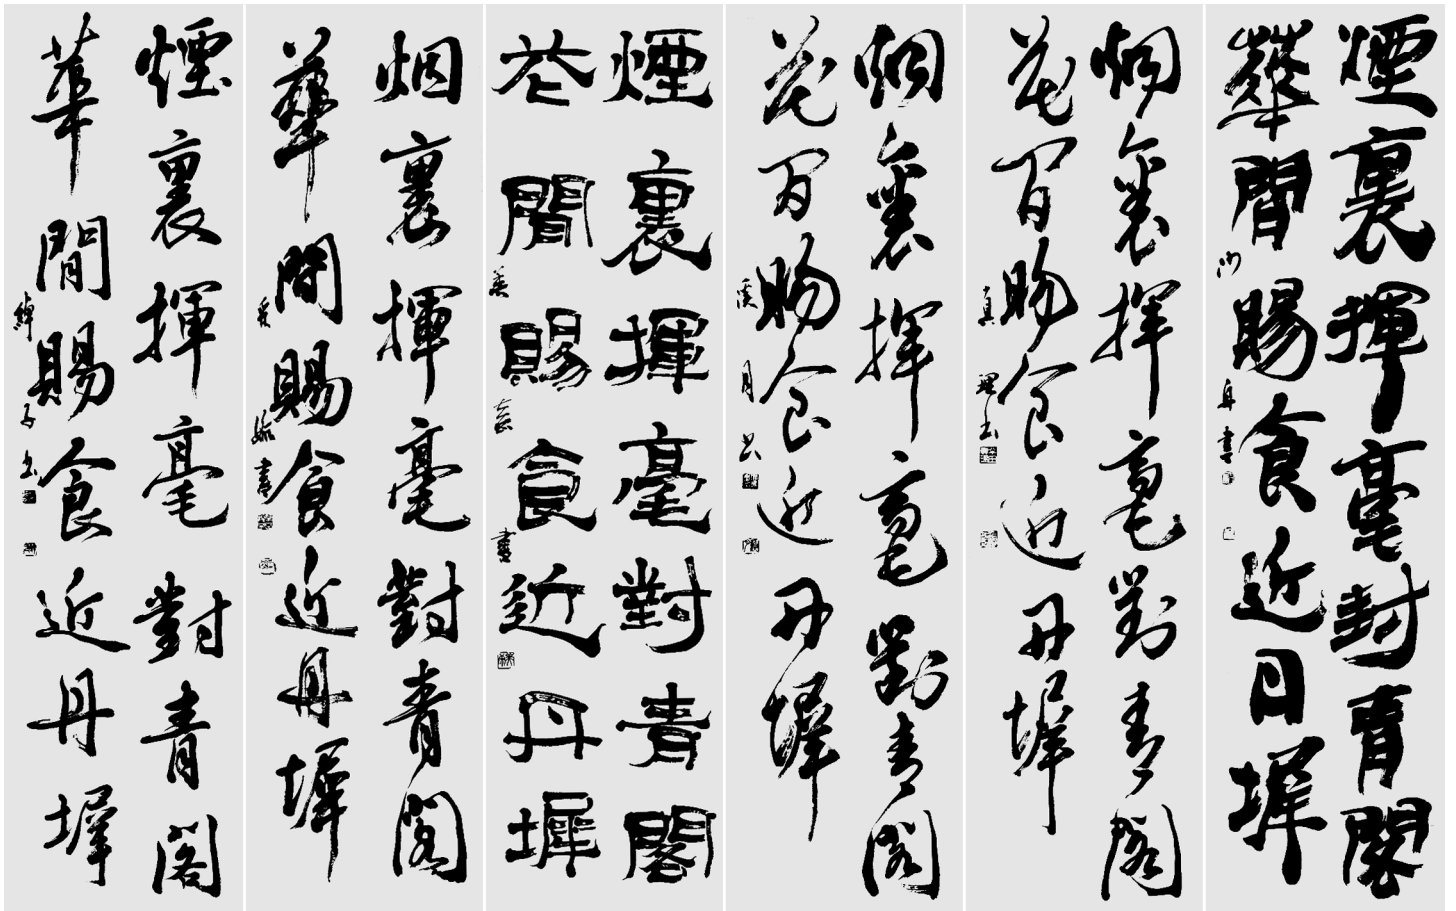 煙裏揮毫對青閣
華閒賜食近丹墀
烟裏揮毫對青閣
花間賜食近丹墀
真理書
烟裏揮毫對青閣
花間賜食近丹墀
溪月書
煙裏揮毫對青閣
花閒賜食近丹墀
書
烟裏揮毫對青閣
華間賜食近丹墀
書
煙裏揮毫對青閣
華閒賜食近丹墀
子書